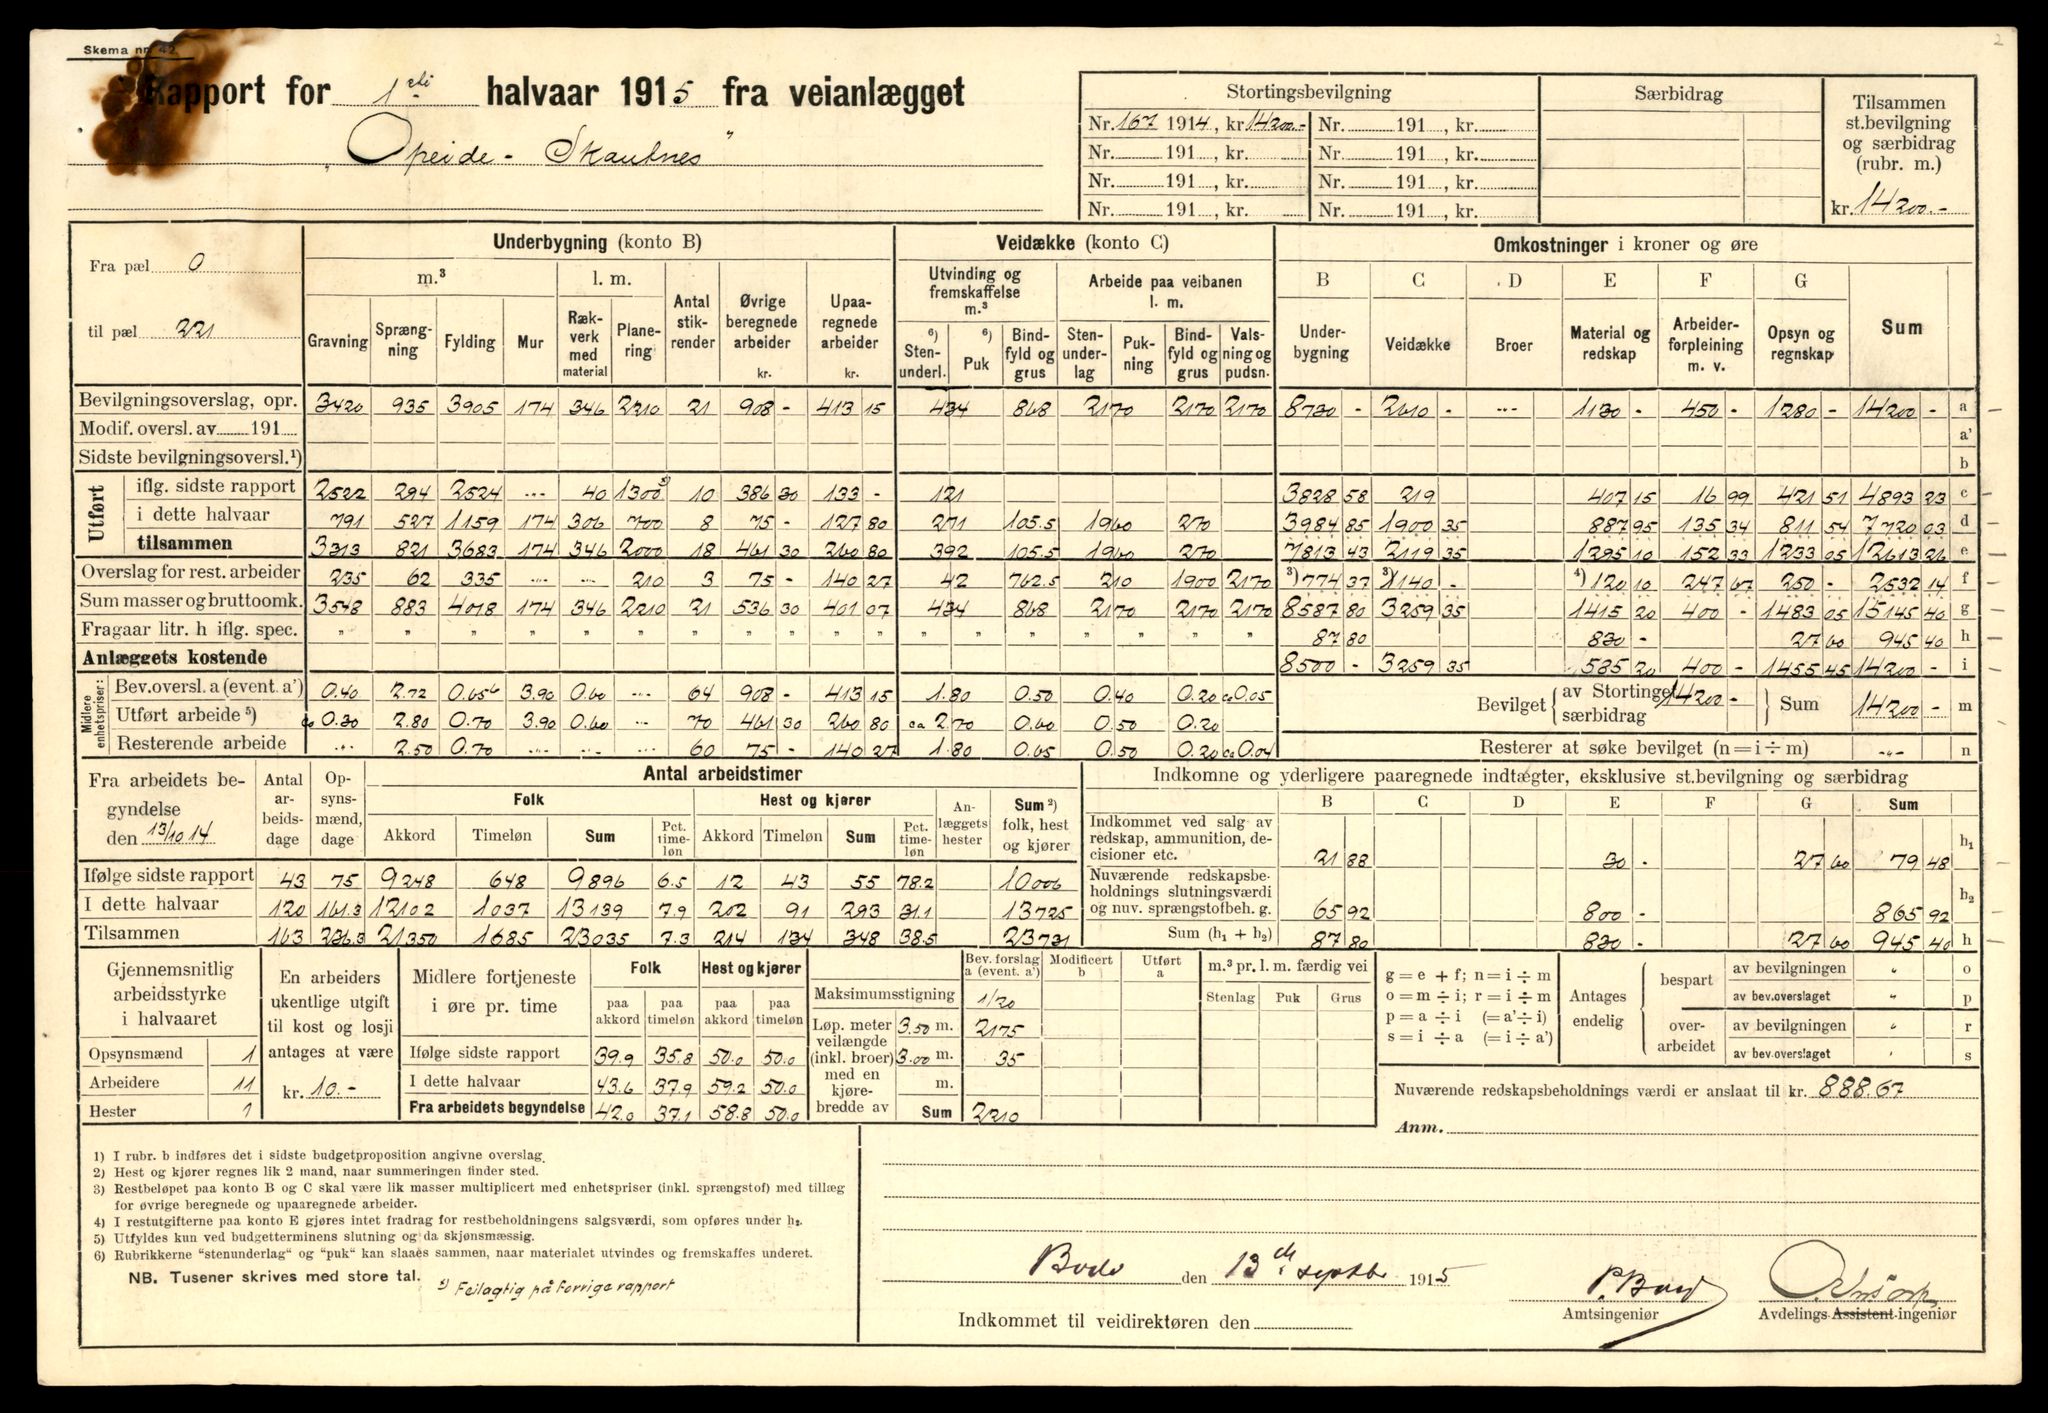 2
Skema nr. 42
Rapport for 1ste halvaar 1915 fra veianlægget
„Opeide - Skautnes"
Stortingsbevilgning Særbidrag Tilsammen st.bevilgning og særbidrag (rubr. m.)
Nr. 167 1914, kr. 14200.- Nr. 191 , kr.
Nr. 191 , kr. Nr. 191 , kr.
Nr. 191 , kr. Nr. 191 , kr.
Nr. 191 , kr. Nr. 191 , kr. kr. 14200.-
Fra pæl 0
til pæl 221
Underbygning (konto B) Veidække (konto C) Omkostninger i kroner og øre
m.³ l. m. Antal stikrender Øvrige beregnede arbeider kr. Upaaregnede arbeider kr. Utvinding og fremskaffelse m.³ Arbeide paa veibanen l. m. B C D E F G Sum
Gravning Sprængning Fylding Mur Rækverk med material Planering 6) Stenunderl. 6) Puk Bindfyld og grus Stenunderlag Pukning Bindfyld og grus Valsning og pudsn. Underbygning Veidække Broer Material og redskap Arbeiderforpleining m. v. Opsyn og regnskap
Bevilgningsoverslag, opr. 3420 935 3905 174 346 2210 21 908 - 413 15 434 868 2170 2170 2170 8730 - 2610 - --- 1130 - 450 - 1280 - 14200 - a
Modif. oversl. av 191 a'
Sidste bevilgningsoversl.¹) b
Utført
iflg. sidste rapport 2522 294 2524 --- 40 1300 ˣ) 10 386 30 133 - 121 3828 58 219 407 15 16 99 421 51 4893 23 c
i dette halvaar 791 527 1159 174 306 700 8 75 - 127 80 271 105.5 1960 270 3984 85 1900 35 887 95 135 34 811 54 7720 03 d
tilsammen 3313 821 3683 174 346 2000 18 461 30 260 80 392 105.5 1960 270 7813 43 2119 35 1295 10 152 33 1233 05 12613 26 e
Overslag for rest. arbeider 235 62 335 --- --- 210 3 75 - 140 27 42 762.5 210 1900 2170 ³) 774 37 ³) 1140 - ⁴) 120 10 247 67 250 - 2532 14 f
Sum masser og bruttoomk. 3548 883 4018 174 346 2210 21 536 30 401 07 434 868 2170 2170 2170 8587 80 3259 35 1415 20 400 - 1483 05 15145 40 g
Fragaar litr. h iflg. spec. " " " " " " " " " " " " " " " " " " 87 80 830 - 27 60 945 40 h
Anlæggets kostende 8500 - 3259 35 585 20 400 - 1455 45 14200 - i
Midlere enhetspriser:
Bev.oversl. a (event. a') 0.40 2.72 0.656 3.90 0.60 --- 64 908 - 413 15 1.80 0.50 0.40 0.20 ca 0.05 Bevilget av Stortinget 14200 - særbidrag Sum 14200 - m
Utført arbeide ⁵) ca 0.30 2.80 0.70 3.90 0.60 --- 70 461 30 260 80 ca 2.70 0.60 0.50 0.20
Resterende arbeide --- 2.50 0.70 --- --- --- 60 75 - 140 27 1.80 0.65 0.50 0.20 ca 0.04 Resterer at søke bevilget (n = i ÷ m) -"- n
Fra arbeidets begyndelse den 13/10 14 Antal arbeidsdage Opsynsmænd, dage Antal arbeidstimer Indkomne og yderligere paaregnede indtægter, eksklusive st.bevilgning og særbidrag
Folk Hest og kjører Anlæggets hester Sum ²) folk, hest og kjører B C D E F G Sum
Akkord Timeløn Sum Pct. timeløn Akkord Timeløn Sum Pct. timeløn
Indkommet ved salg av redskap, ammunition, decisioner etc. 21 88 30 - 27 60 79 48 h₁
Ifølge sidste rapport 43 75 9248 648 9896 6.5 12 43 55 78.2 10006
Nuværende redskapsbeholdnings slutningsværdi og nuv. sprængstofbeh. g. 65 92 800 - 865 92 h₂
I dette halvaar 120 161.3 12102 1037 13139 7.9 202 91 293 31.1 13725
Tilsammen 163 236.3 21350 1685 23035 7.3 214 134 348 38.5 23731
Sum (h₁ + h₂) 87 80 830 - 27 60 945 40 h
Gjennemsnitlig arbeidsstyrke i halvaaret
Opsynsmænd 1
Arbeidere 11
Hester 1
En arbeiders ukentlige utgift til kost og losji antages at være kr. 10.-
Midlere fortjeneste i øre pr. time Folk Hest og kjører
paa akkord paa timeløn paa akkord paa timeløn
Ifølge sidste rapport 39.9 35.8 50.0 50.0
I dette halvaar 43.6 37.9 59.2 50.0
Fra arbeidets begyndelse 42.0 37.1 58.8 50.0
Bev. forslag a (event. a') Modificert b Utført a m.³ pr. l. m. færdig vei
Stenlag Puk Grus
Maksimumsstigning 1/20
Løp. meter veilængde (inkl. broer) med en kjørebredde av 3.50 m. 2175
3.00 m. 35
m.
Sum 2210
g = e + f; n = i ÷ m
o = m ÷ i; r = i ÷ m
p = a ÷ i (= a' ÷ i)
s = i ÷ a (= i ÷ a')
Antages endelig
bespart av bevilgningen " o
av bev.overslaget " p
overarbeidet av bevilgningen " r
av bev.overslaget " s
Nuværende redskapsbeholdnings værdi er anslaat til kr. 888.67
Anm.
1) I rubr. b indføres det i sidste budgetproposition angivne overslag.
2) Hest og kjører regnes lik 2 mand, naar summeringen finder sted.
3) Restbeløpet paa konto B og C skal være lik masser multiplicert med enhetspriser (inkl. sprængstof) med tillæg
for øvrige beregnede og upaaregnede arbeider.
4) I restutgifterne paa konto E gjøres intet fradrag for restbeholdningens salgsværdi, som opføres under h₂.
5) Utfyldes kun ved budgetterminens slutning og da skjønsmæssig.
6) Rubrikkerne "stenunderlag" og "puk" kan slaaes sammen, naar materialet utvindes og fremskaffes underet.
NB. Tusener skrives med store tal.
ˣ) Feilagtig på forrige rapport
Bodø den 13de septbr 1915
Amtsingeniør
Avdelings Assistent ingeniør
Indkommet til veidirektøren den